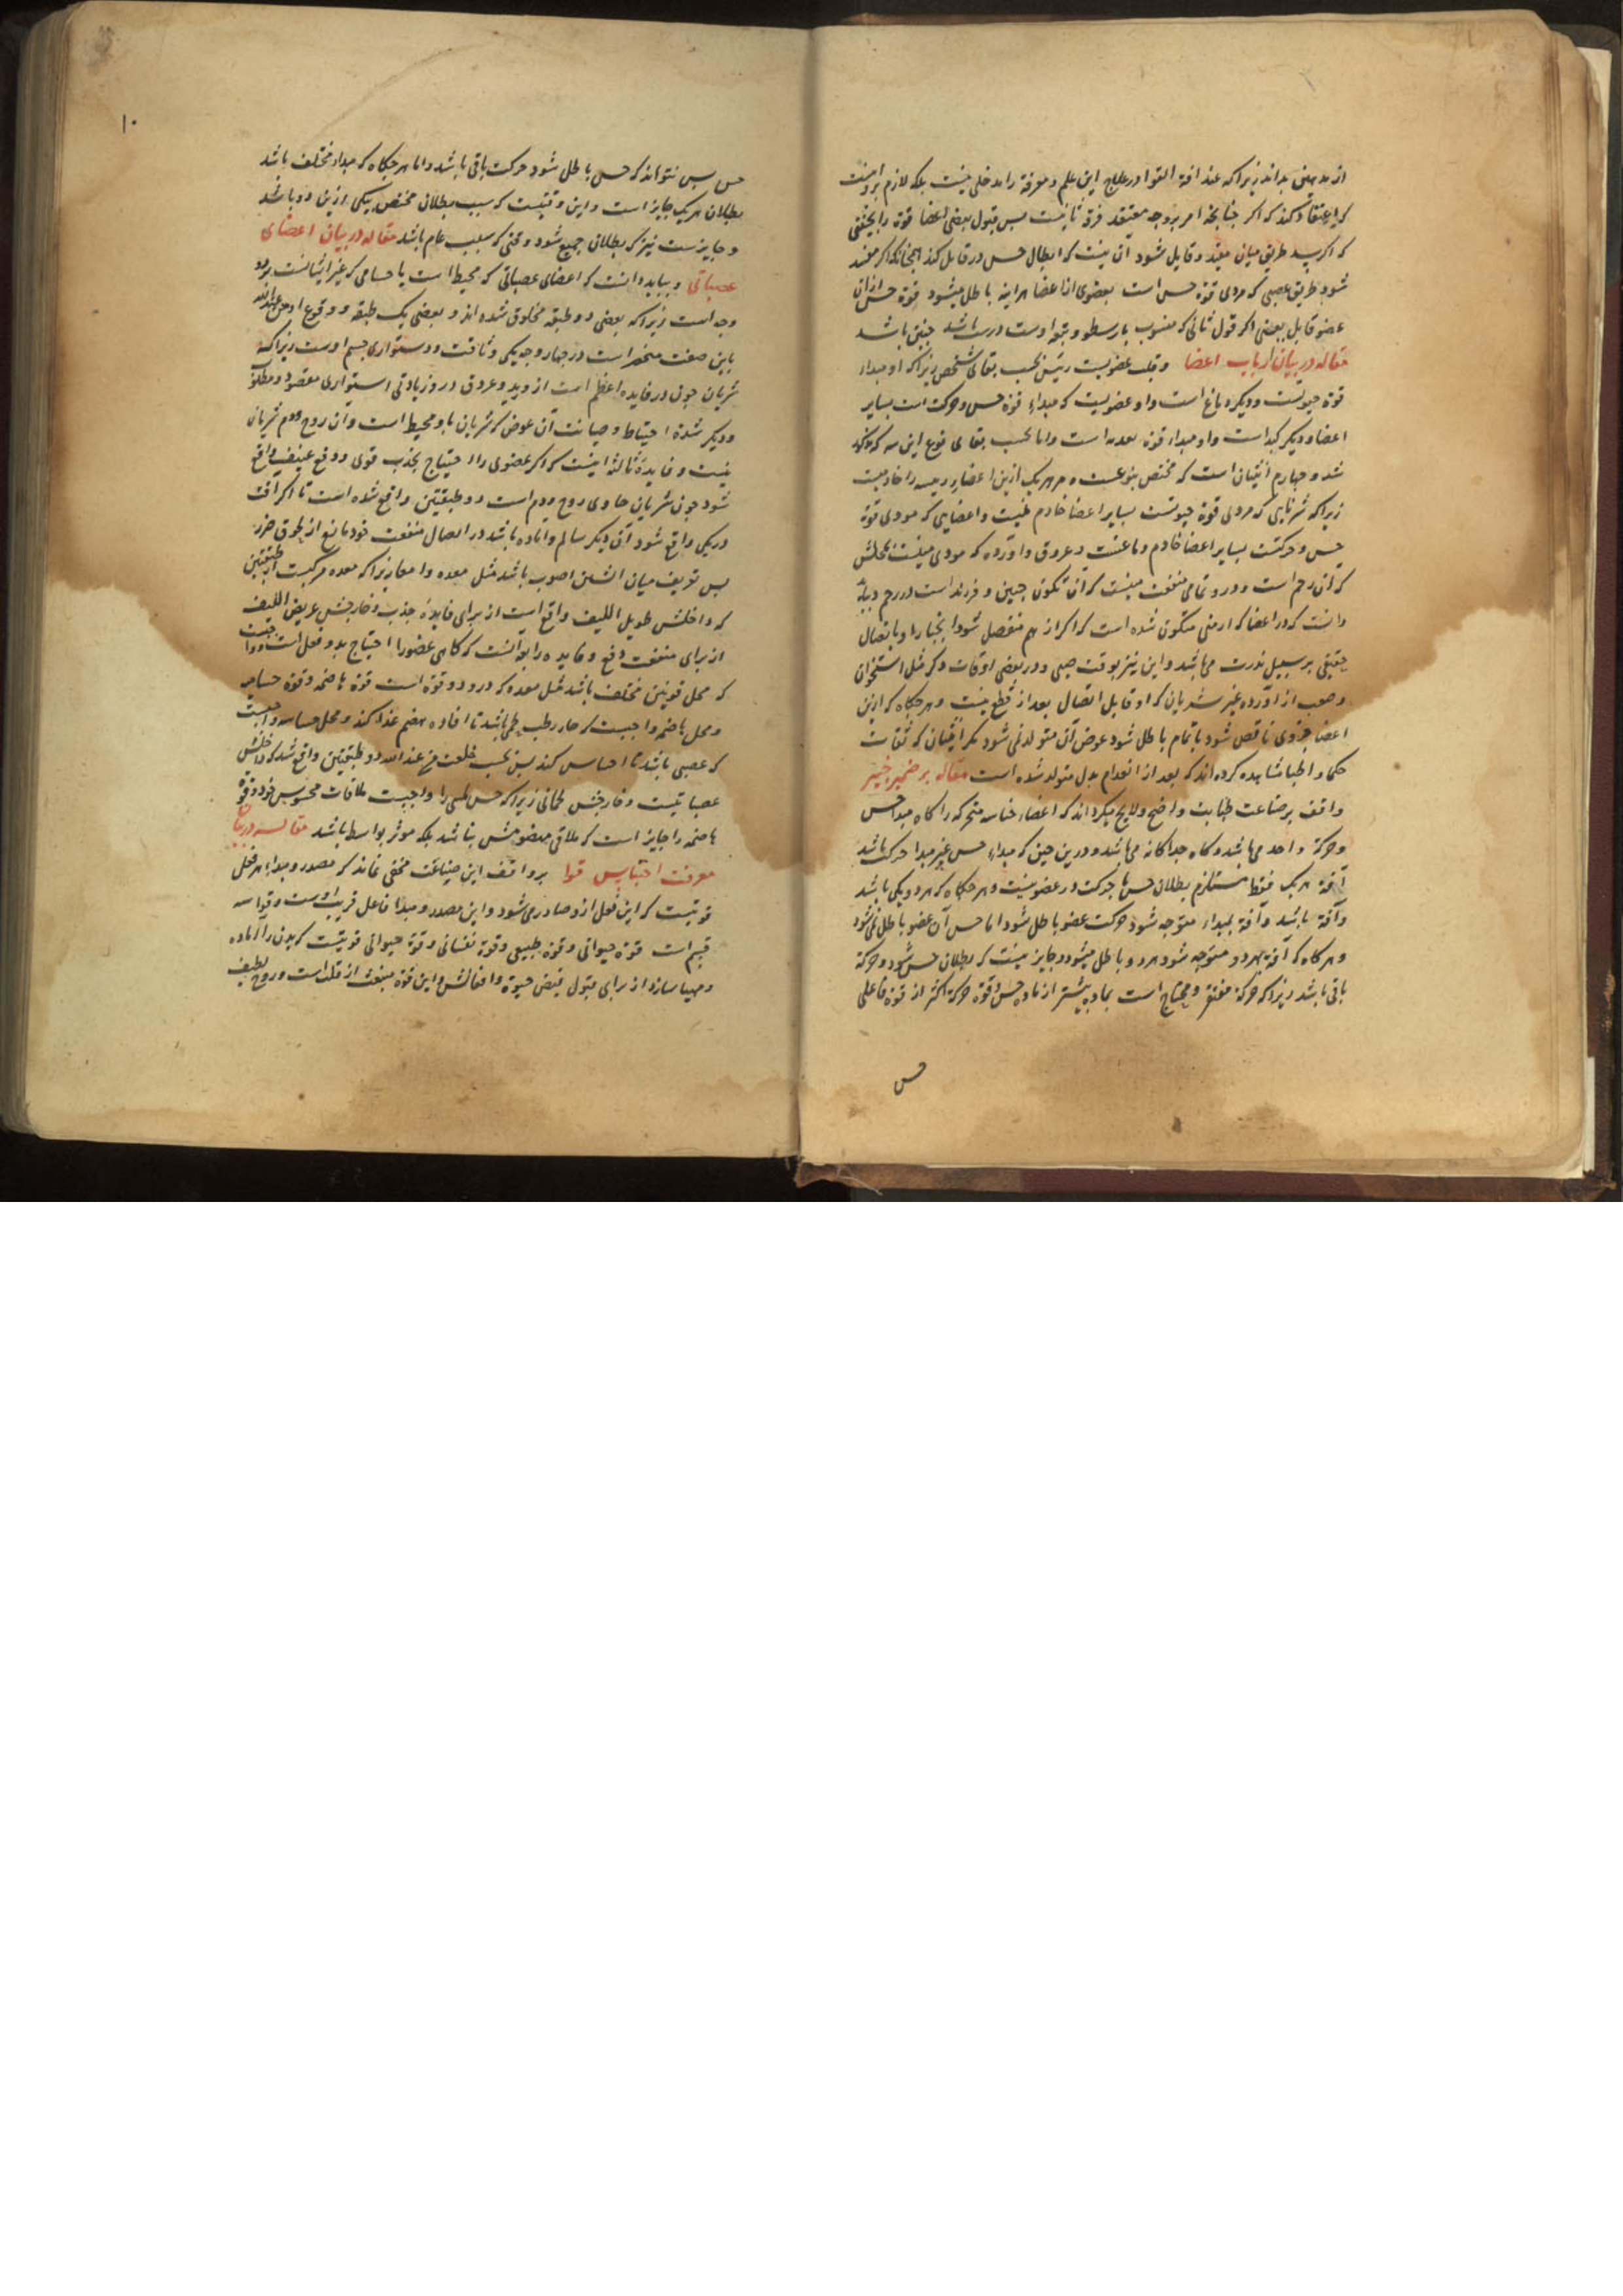 از بدیهی بداند زیرا که عند افة القوا در علاج این علم و معرفة را مدخلی نیست بلکه لازم
که اعتقاد کند که اگر چنانچه امر بر وجه معتقد فرقه ثانیست پس قبول بعضی اعضا قوة را
که اگر سد طریق میان مفید و قابل شود آن نیست که ابطال حس در قابل کند همچنانکه اگر مفسد
شود طریق عصبی که مودی قوة حس است بعضوی از اعضا هراینه باطل میشود قوة حس ازان
عضو قابل بعضی اگر قول ثانی که منسوب بارسطو و توابع اوست درست باشد چنین باشد
مقاله در بیان ارباب اعضا و قلب عضویست رئیس بحسب بقای شخص زیرا که او مبداء
قوة حیوتست و دیگر دماغ است و او عضویست که مبداء قوة حس و حرکت است بسایر
اعضا و دیگر کبد است و او مبداء قوة است و اما بحسب بقای نوع این سه که مذکور
شد و چهارم انثیان است که مختص بنوعست و هر یک ازین اعضاء رییسه را خادمیست
زیرا که شریانی که مودی قوة حیوتست بسایر اعضا خادم و اعضایی که مودی قوة
حس و حرکتست بسایر اعضا خادم دماغست و عروق و اورده که مودی
که آن رحم است و در و تمامی منفعت که آن تکون جنین و فرزند است در رحم و بباید
دانست که در اعضا که از منی متکون شده است که اگر از هم منفصل شود انجبار او باتصال
حقیقی بر سبیل ندرت می باشد و این نیز بوقت صبی و در بعضی اوقات دگر مثل استخوان
و عصب از اورده غیر شریان که او قابل اتصال بعد از قطع نیست و هر چگاه که ازین
اعضا جزوی ناقص شود یا تمام باطل شود عوض آن متولد نمی شود مگر اسنان که ثقات
حکما و اطبا مشاهده کرده اند که بعد از انعدام بدل متولد شده است مقاله بر ضمیر خبیر
واقف بر صناعت طبابت واضح و لایح میگرداند که اعضاء حساسه متحرکه را گاه مبدا حس
و حرکة واحد می باشد و گاه جداگانه می باشد و درین حین که مبداء حس غیر مبدا حرکت باشد
آفة هر یک فقط مستلزم بطلان حس یا حرکت در عضو نیست و هر چگاه که هر دو یکی باشد
و آفة باشد و آفة بمبداء متوجه شود حرکت عضو باطل شود اما حس آن عضو باطل نمی شود
و هرگاه که آفة بهر دو متوجه شود هر دو باطل میشود و جایز نیست که بطلان حس شود و حرکة
باقی باشد زیرا که حرکة مفتقر و محتاج است بماده بیشتر از ماده حس و قوة حرکة اکثر از قوة فاعلی
حس
۱۰
حس پس نتواند که حس باطل شود و حرکت باقی باشد و اما هر چگاه که مبداء مختلف باشد
بطلان هر یک جایز است و این وقتیست که سبب بطلان مختص بیکی ازین دو باشد
و جایزست نیز که بطلان جمیع شود وقتی که سبب عام باشد مقاله در بیان اعضای
عصباتی و بباید دانست که اعضای عصباتی که محیط است یا حسامی که غیر ایشانست بر دو
وجه است زیرا که بعضی دو طبقه مخلوق شده اند و بعضی یک طبقه و وقوع او
باین صفت منحصر است در چهار وجه یکی وثاقت و استواری جسم اوست زیرا که
شریان چون در فایده اعظم است از ورید و عروق در و زیادتی استواری مقصود و مطلوب
و دیگر شدة احتیاط و صیانت آن عوض که شریان باو محیط است و آن روح و دم شریان
نیست و فایدة ثالثه اینست که اگر عضوی را احتیاج بجذب قوی و دفع عنیف واقع
شود چون شریان حاوی روح و دم است دو طبقتین واقع شده است تا اگر آفت
در یکی واقع شود آن دیگر سالم و آماده باشد در ایصال منفعت خود مانع از لحوق ضرر
پس تعریف میان اثنین اصوب باشد مثل معده و امعا زیرا که معده مرکبست از طبقتین
که داخلش طویل اللیف واقع است از برای فایدة جذب و خارجش عریض اللیف
از برای منفعت دفع و فایده رابعه آنست که گاهی عضو را احتیاج بدو فعل است
که محل قوتین مختلف باشد مثل معده که درو دو قوة است قوة هاضمه و قوة حساسه
و محل هاضمه واجبست که حار رطب لحمی باشد تا افاده هضم غذا کند و محل حساسه واجبست
که عصبی باشد تا احساس کند پس بحسب خلقت من عند الله دو طبقتین واقع شد که داخلش
عصباتیست و خارجش لحمانی زیرا که حس لمسی را واجبست ملاقات محسوس خود و قوة
هاضمه را جایز است که ملاقی مهضومش نباشد بلکه موثر بواسطه باشد مقاله در بیان
معرفت اجناس قوا بر واقف این صناعت مخفی نماند که مصدر و مبداء هر فعل
قوتیست که این فعل ازو صادر می شود و این مصدر و مبدا فاعل قریب اوست و قوا سه
قسم است قوة حیوانی و قوة طبیعی و قوة نفسانی و قوة حیوانی قوتیست که بدن را آماده
و مهیا سازد از برای قبول فیض حیوة و افعالش و این قوة منبعث از قلب است و روح لطیف